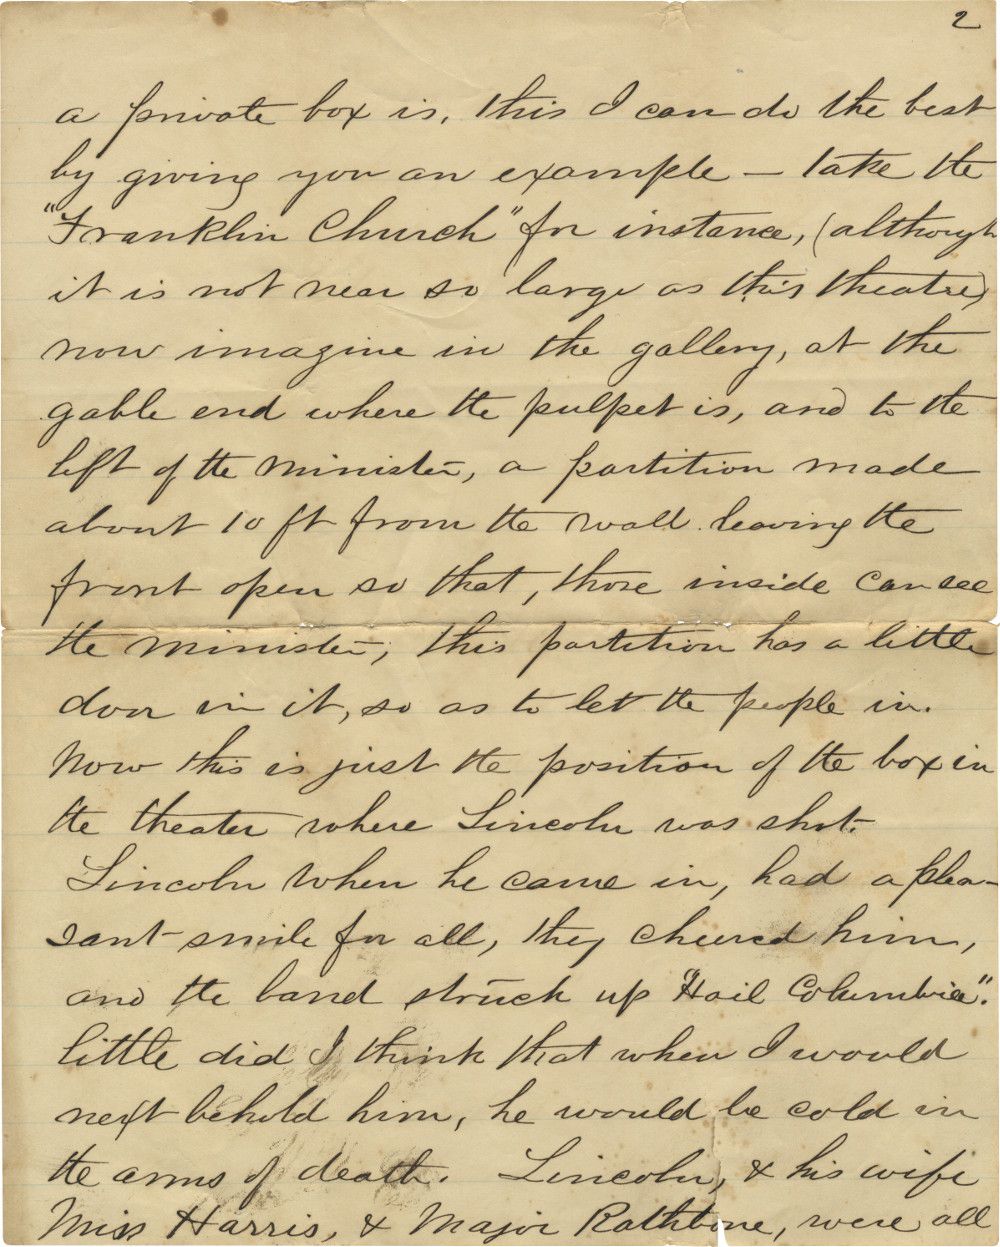 2
a private box is, this I can do the best
by giving you an example — take the
"Franklin Church" for instance, (although
it is not near so large as this theatre)
now imagine in the gallery, at the
gable end where the pulpet is, and to the
left of the minister, a partition made
about 10 ft from the wall leaving the
front open so that, those inside can see
the minister; this partition has a little
door in it, so as to let the people in.
Now this is just the position of the box in
the theater where Lincoln was shot.
Lincoln when he came in, had a plea-
sant smile for all, they cheered him,
and the band struck up "Hail Columbia".
little did I think that when I would
next behold him, he would be cold in
the arms of death. Lincoln, & his wife
Miss Harris, & Major Rathbone, were all